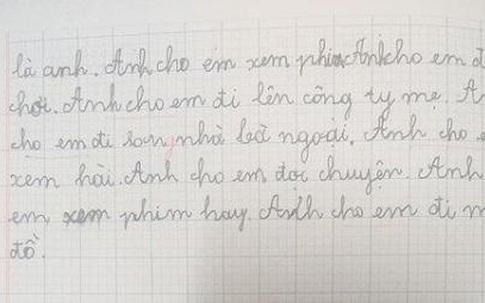 là anh. Anh cho em xem phim Anh cho em đ
chơi. Anh cho em đi lên công ty mẹ. A
cho em đi sang nhà bà ngoại. Anh cho
xem hài. Anh cho em đọc chuyện. Anh
em xem phim hay. Anh cho em đi m
đồ.